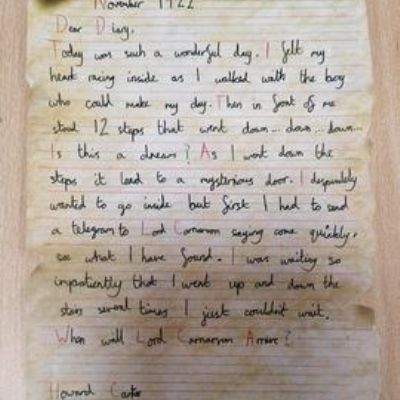 November 1922
Dear Diary,
Today was such a wonderful day. I felt my
heart racing inside as I walked walk the boy
who could make my day. Then in front of me
stood 12 steps that went down... down... down...
Is this a dream? As I went down the
steps it lead to a mysterious door. I desperately
wanted to go inside but first I had to send
a telegram to Lord Carnarvon saying come quickly,
see what I have found. I was waiting so
impatiently that I went up and down the
stairs several times I just couldn't wait.
When will Lord Carnarvon Arrive?
Howard Carter